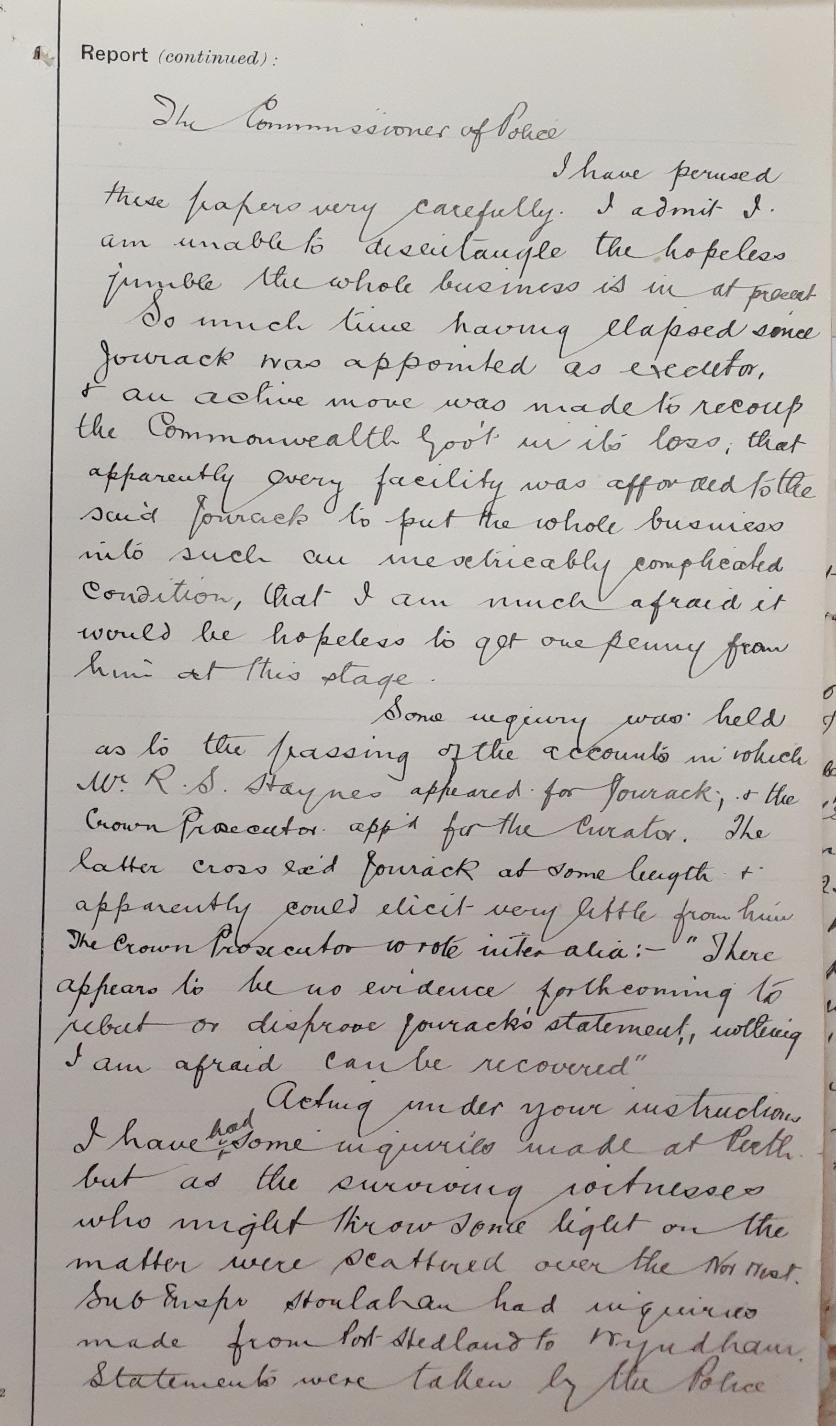 Report (continued):
The Commissioner of Police
I have perused
these papers very carefully. I admit I
am unable to disentangle the hopeless
jumble the whole business is in at present
So much time having elapsed since
Jourack was appointed as executor,
& an active move was made to recoup
the Commonwealth Gov't in its loss, that
apparently every facility was afforded to the
said Jourack to put the whole business
into such an inextricably complicated
condition, that I am much afraid it
would be hopeless to get one penny from
him at this stage.
Some inquiry was held
as to the passing of the accounts in which
Mr. R. S. Haynes appeared for Jourack; & the
Crown Prosecutor app'd for the Curator. The
latter cross ex'd Jourack at some length &
apparently could elicit very little from him
The Crown Prosecutor wrote inter alia:- "There
appears to be no evidence forthcoming to
rebut or disprove Jourack's statement, nothing
I am afraid can be recovered"
Acting under your instructions
I have had some inquiries made at Perth.
but as the surviving witnesses
who might throw some light on the
matter were scattered over the Nor West.
Sub Inspr Houlahan had inquiries
made from Port Hedland to Wyndham.
Statements were taken by the Police